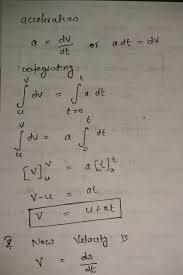 acceleration
a = dv/dt or a dt = dv
integrating
∫_u^v dv = ∫_{t=0}^t a dt
∫_u^v dv = a ∫_0^t dt
[v]_u^v = a [t]_0^t
v-u = at
v = u+at
Now velocity is
v = ds/dt